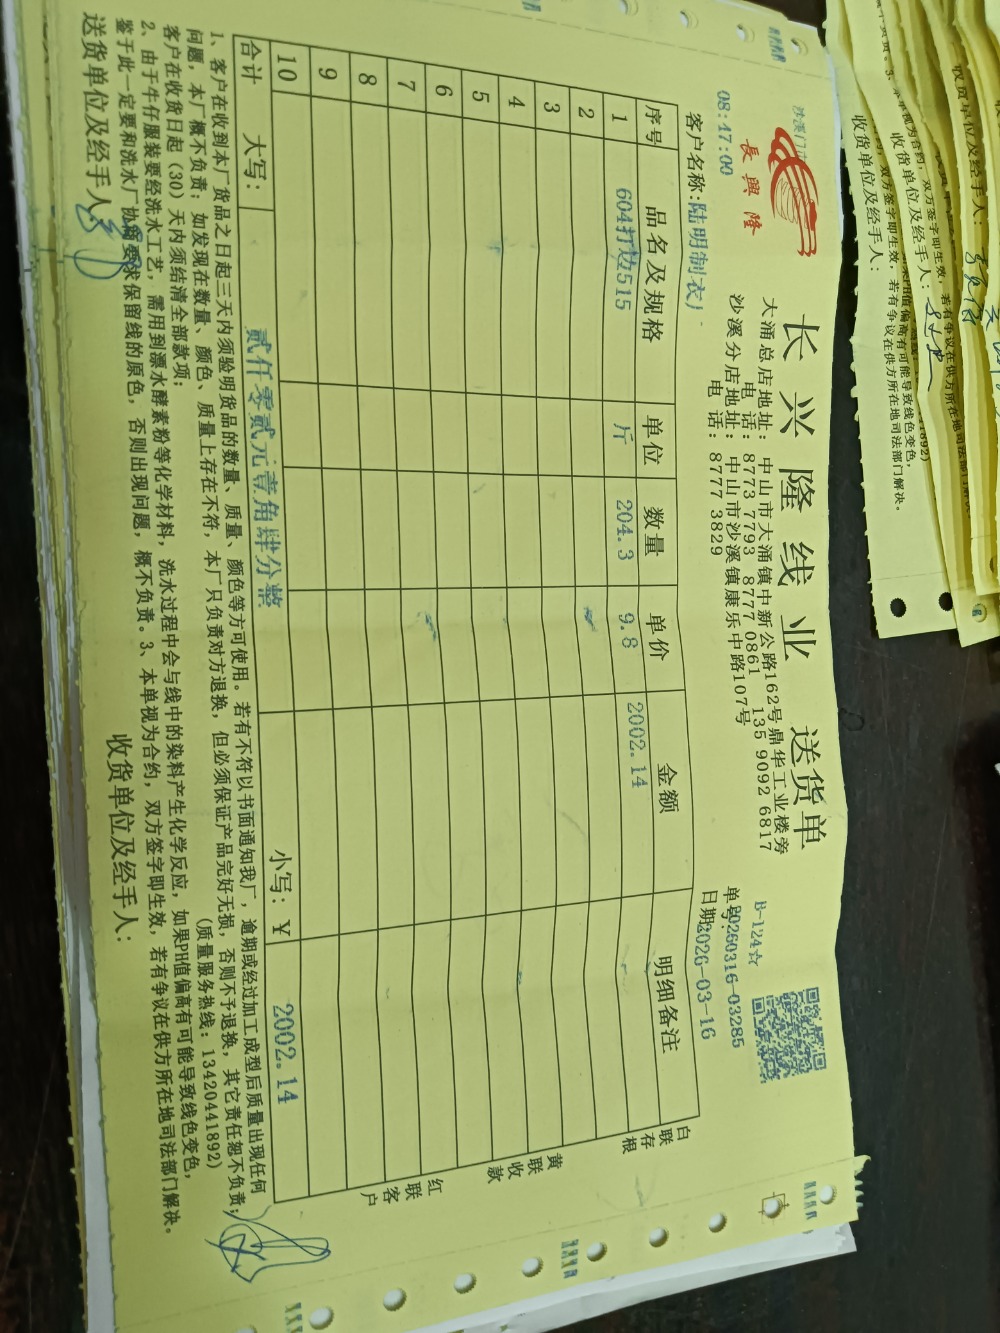 沙溪门市
長興隆
长兴隆线业 送货单
大涌总店地址：中山市大涌镇中新公路162号鼎华工业楼旁
电 话：8773 7793 8777 0861 135 9092 6817
沙溪分店地址：中山市沙溪镇康乐中路107号
电 话：8777 3829
B-124☆
单号:20260316-03285
08:47:00
日期:2026-03-16
客户名称:陆明制衣厂
序号 品名及规格 单位 数量 单价 金额 明细备注
1 604打边515 斤 204.3 9.8 2002.14
2
3
4
5
6
7
8
9
10
合计 大写： 贰仟零贰元壹角肆分整 小写：¥ 2002.14
白联存根
黄联收款
红联客户
1、客户在收到本厂货品之日起三天内须验明货品的数量、质量、颜色等方可使用。若有不符以书面通知我厂，逾期或经过加工成型后质量出现任何
问题，本厂概不负责；如发现在数量、颜色、质量上存在不符，本厂只负责对方退换，但必须保证产品完好无损，否则不予退换，其它责任恕不负责；
客户在收货日起（30）天内须结清全部款项； (质量服务热线：13420441892)
2、由于牛仔服装要经洗水工艺，需用到漂水酵素粉等化学材料，洗水过程中会与线中的染料产生化学反应，如果PH值偏高有可能导致线色变色，
鉴于此一定要和洗水厂协商要求保留线的原色，否则出现问题，概不负责。3、本单视为合约，双方签字即生效，若有争议在供方所在地司法部门解决。
送货单位及经手人：
收货单位及经手人：
收货单位及经手人：
收货单位及经手人：
收货单位及经手人：